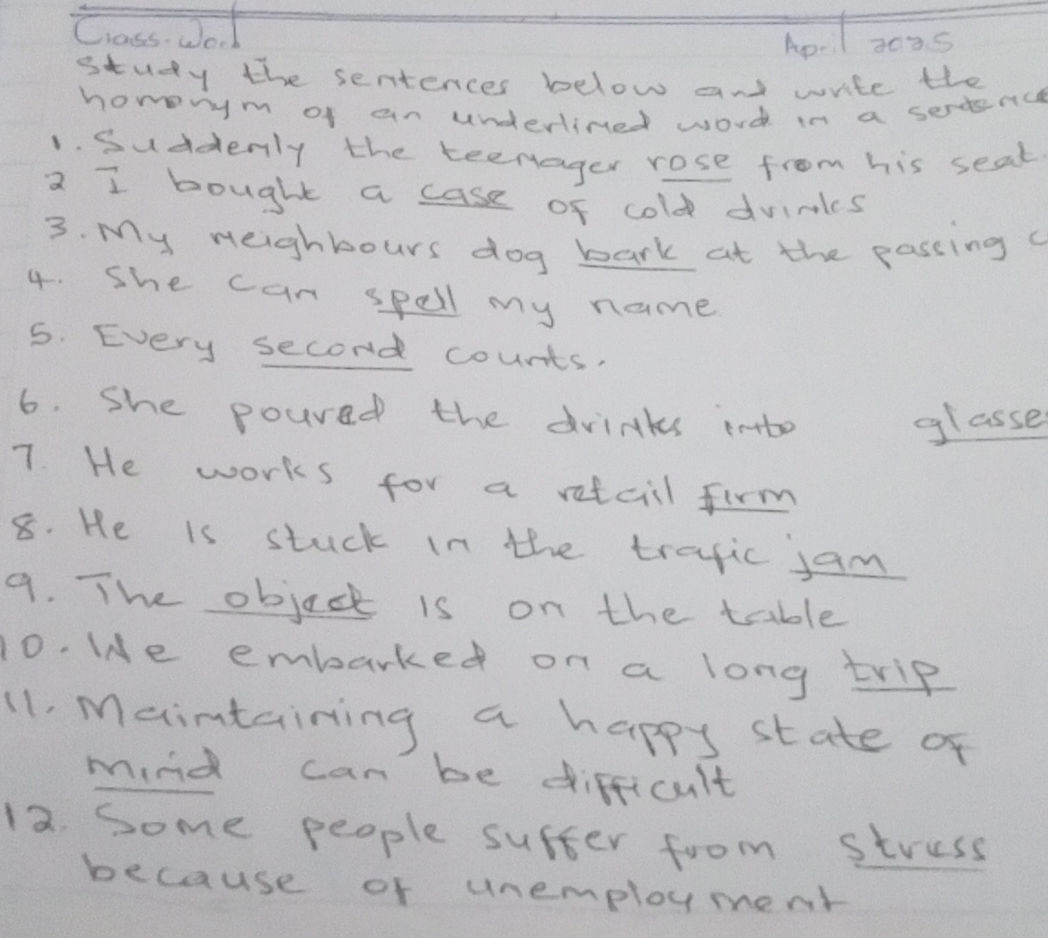 Class-Work
April 2025
Study the sentences below and write the
homonym of an underlined word in a sentence
1. Suddenly the teenager rose from his seat.
2 I bought a case of cold drinks
3. My neighbours dog bark at the passing c
4. She can spell my name.
5. Every second counts.
6. She poured the drinks into glasse
7. He works for a retail firm
8. He is stuck in the trafic jam
9. The object is on the table
10. We embarked on a long trip
11. Maintaining a happy state of
mind can be difficult
12. Some people suffer from stress
because of unemployment